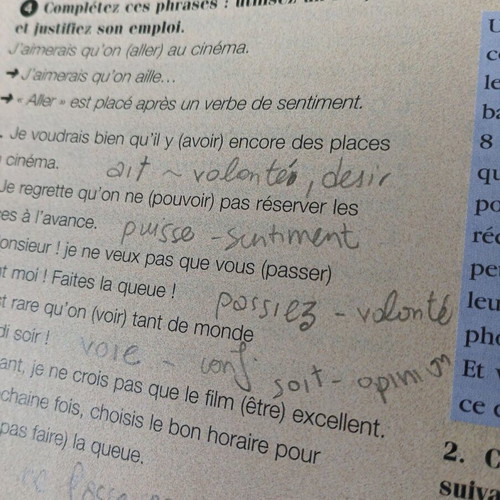 4 Complétez ces phrases :
et justifiez son emploi.
J'aimerais qu'on (aller) au cinéma.
➔ J'aimerais qu'on aille...
➔ « Aller » est placé après un verbe de sentiment.
Je voudrais bien qu'il y (avoir) encore des places
cinéma.
ait ~ volonté, desir
Je regrette qu'on ne (pouvoir) pas réserver les
es à l'avance.
puisse - sentiment
onsieur ! je ne veux pas que vous (passer)
t moi ! Faites la queue !
passiez - volonté
t rare qu'on (voir) tant de monde
di soir !
voie -
soit - opinion
ant, je ne crois pas que le film (être) excellent.
chaine fois, choisis le bon horaire pour
pas faire) la queue.
le
ba
8
qu
po
réc
per
leu
pho
Et
ce
2. C
suiva